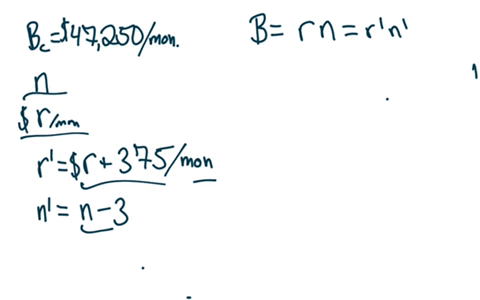 B_c=$47,250/mon.
n
$r/mon
r'=$r+375/mon
n'=n-3
B=rn=r'n'
1